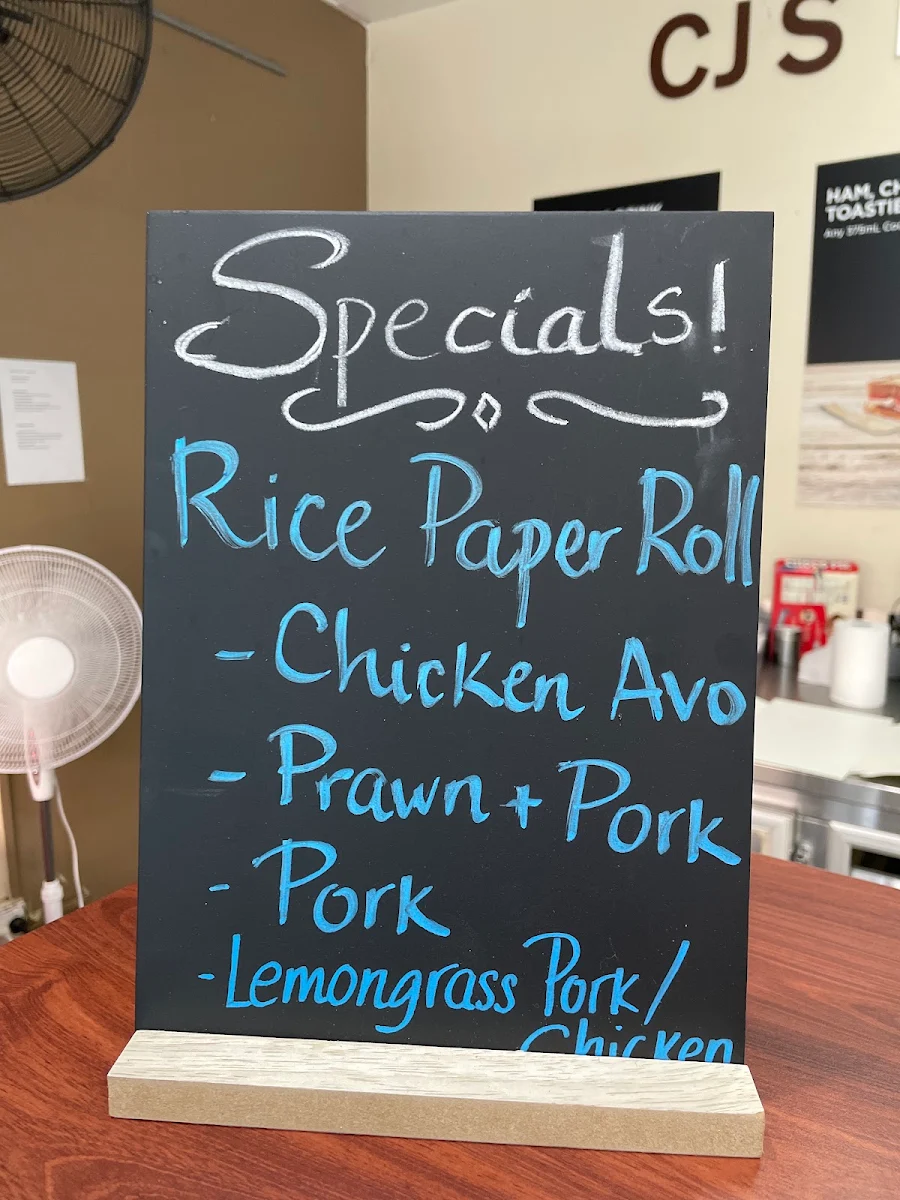 CJS
HAM, CH
TOASTIE
Any 375mL Co
Specials!
Rice Paper Roll
- Chicken Avo
- Prawn + Pork
- Pork
- Lemongrass Pork /
Chicken